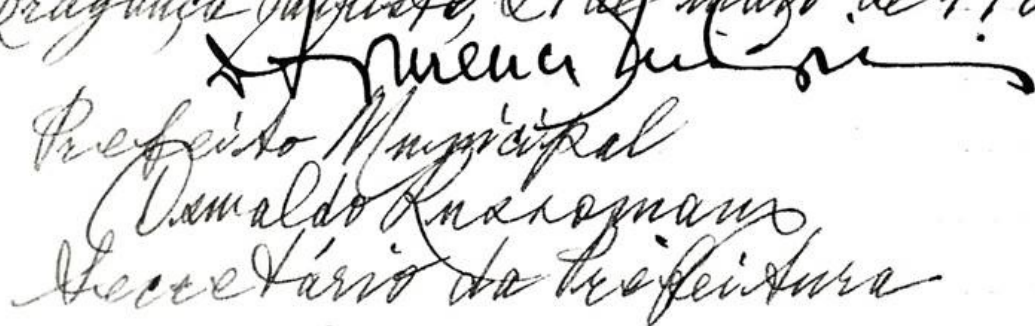 Bragança Paulista, 21 de março de
Prefeito Municipal
Oswaldo Russomano
Secretário da Prefeitura